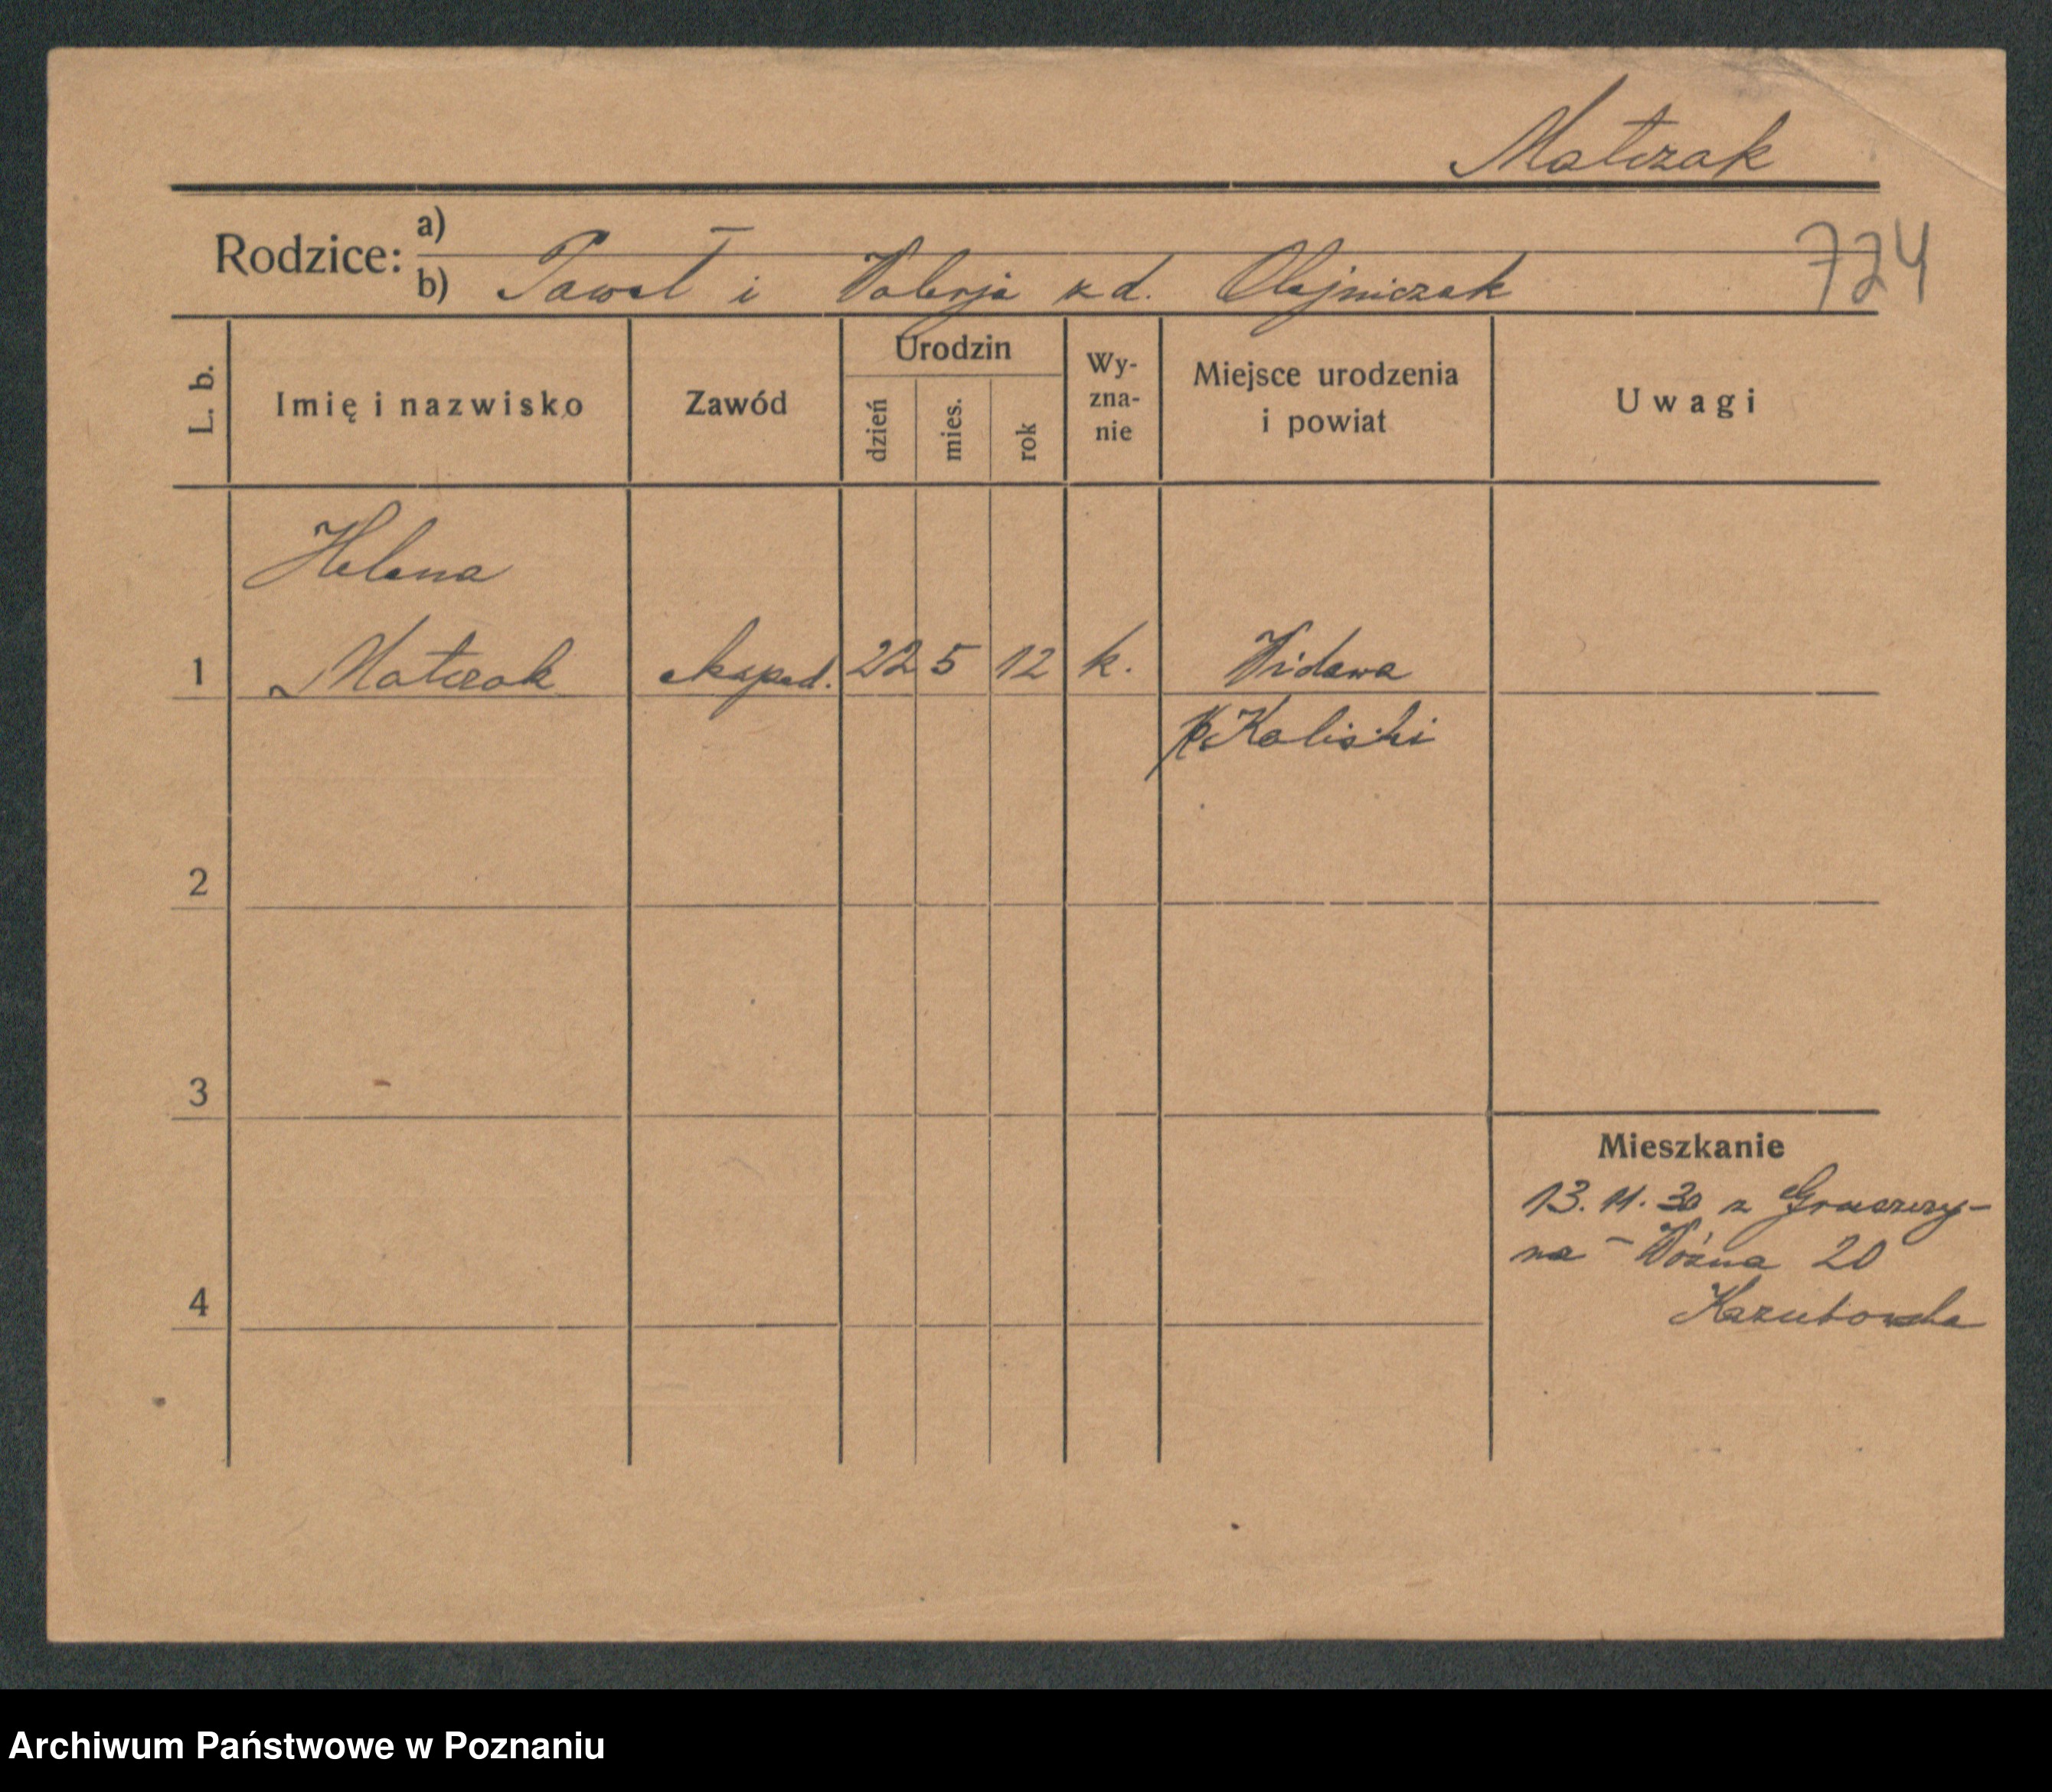 Matczak
Rodzice: a)
b) Paweł i Valerja zd. Olejniczak
724
L. b.
Imię i nazwisko
Zawód
Urodzin
dzień
mies.
rok
Wy-
zna-
nie
Miejsce urodzenia
i powiat
Uwagi
Helena
1 Matczak eksped. 22 5 12 k. Widawa
Kaliski
2
3
4
Mieszkanie
13.11.30 z Gruszczy-
na - Woźna 20
Archiwum Państwowe w Poznaniu